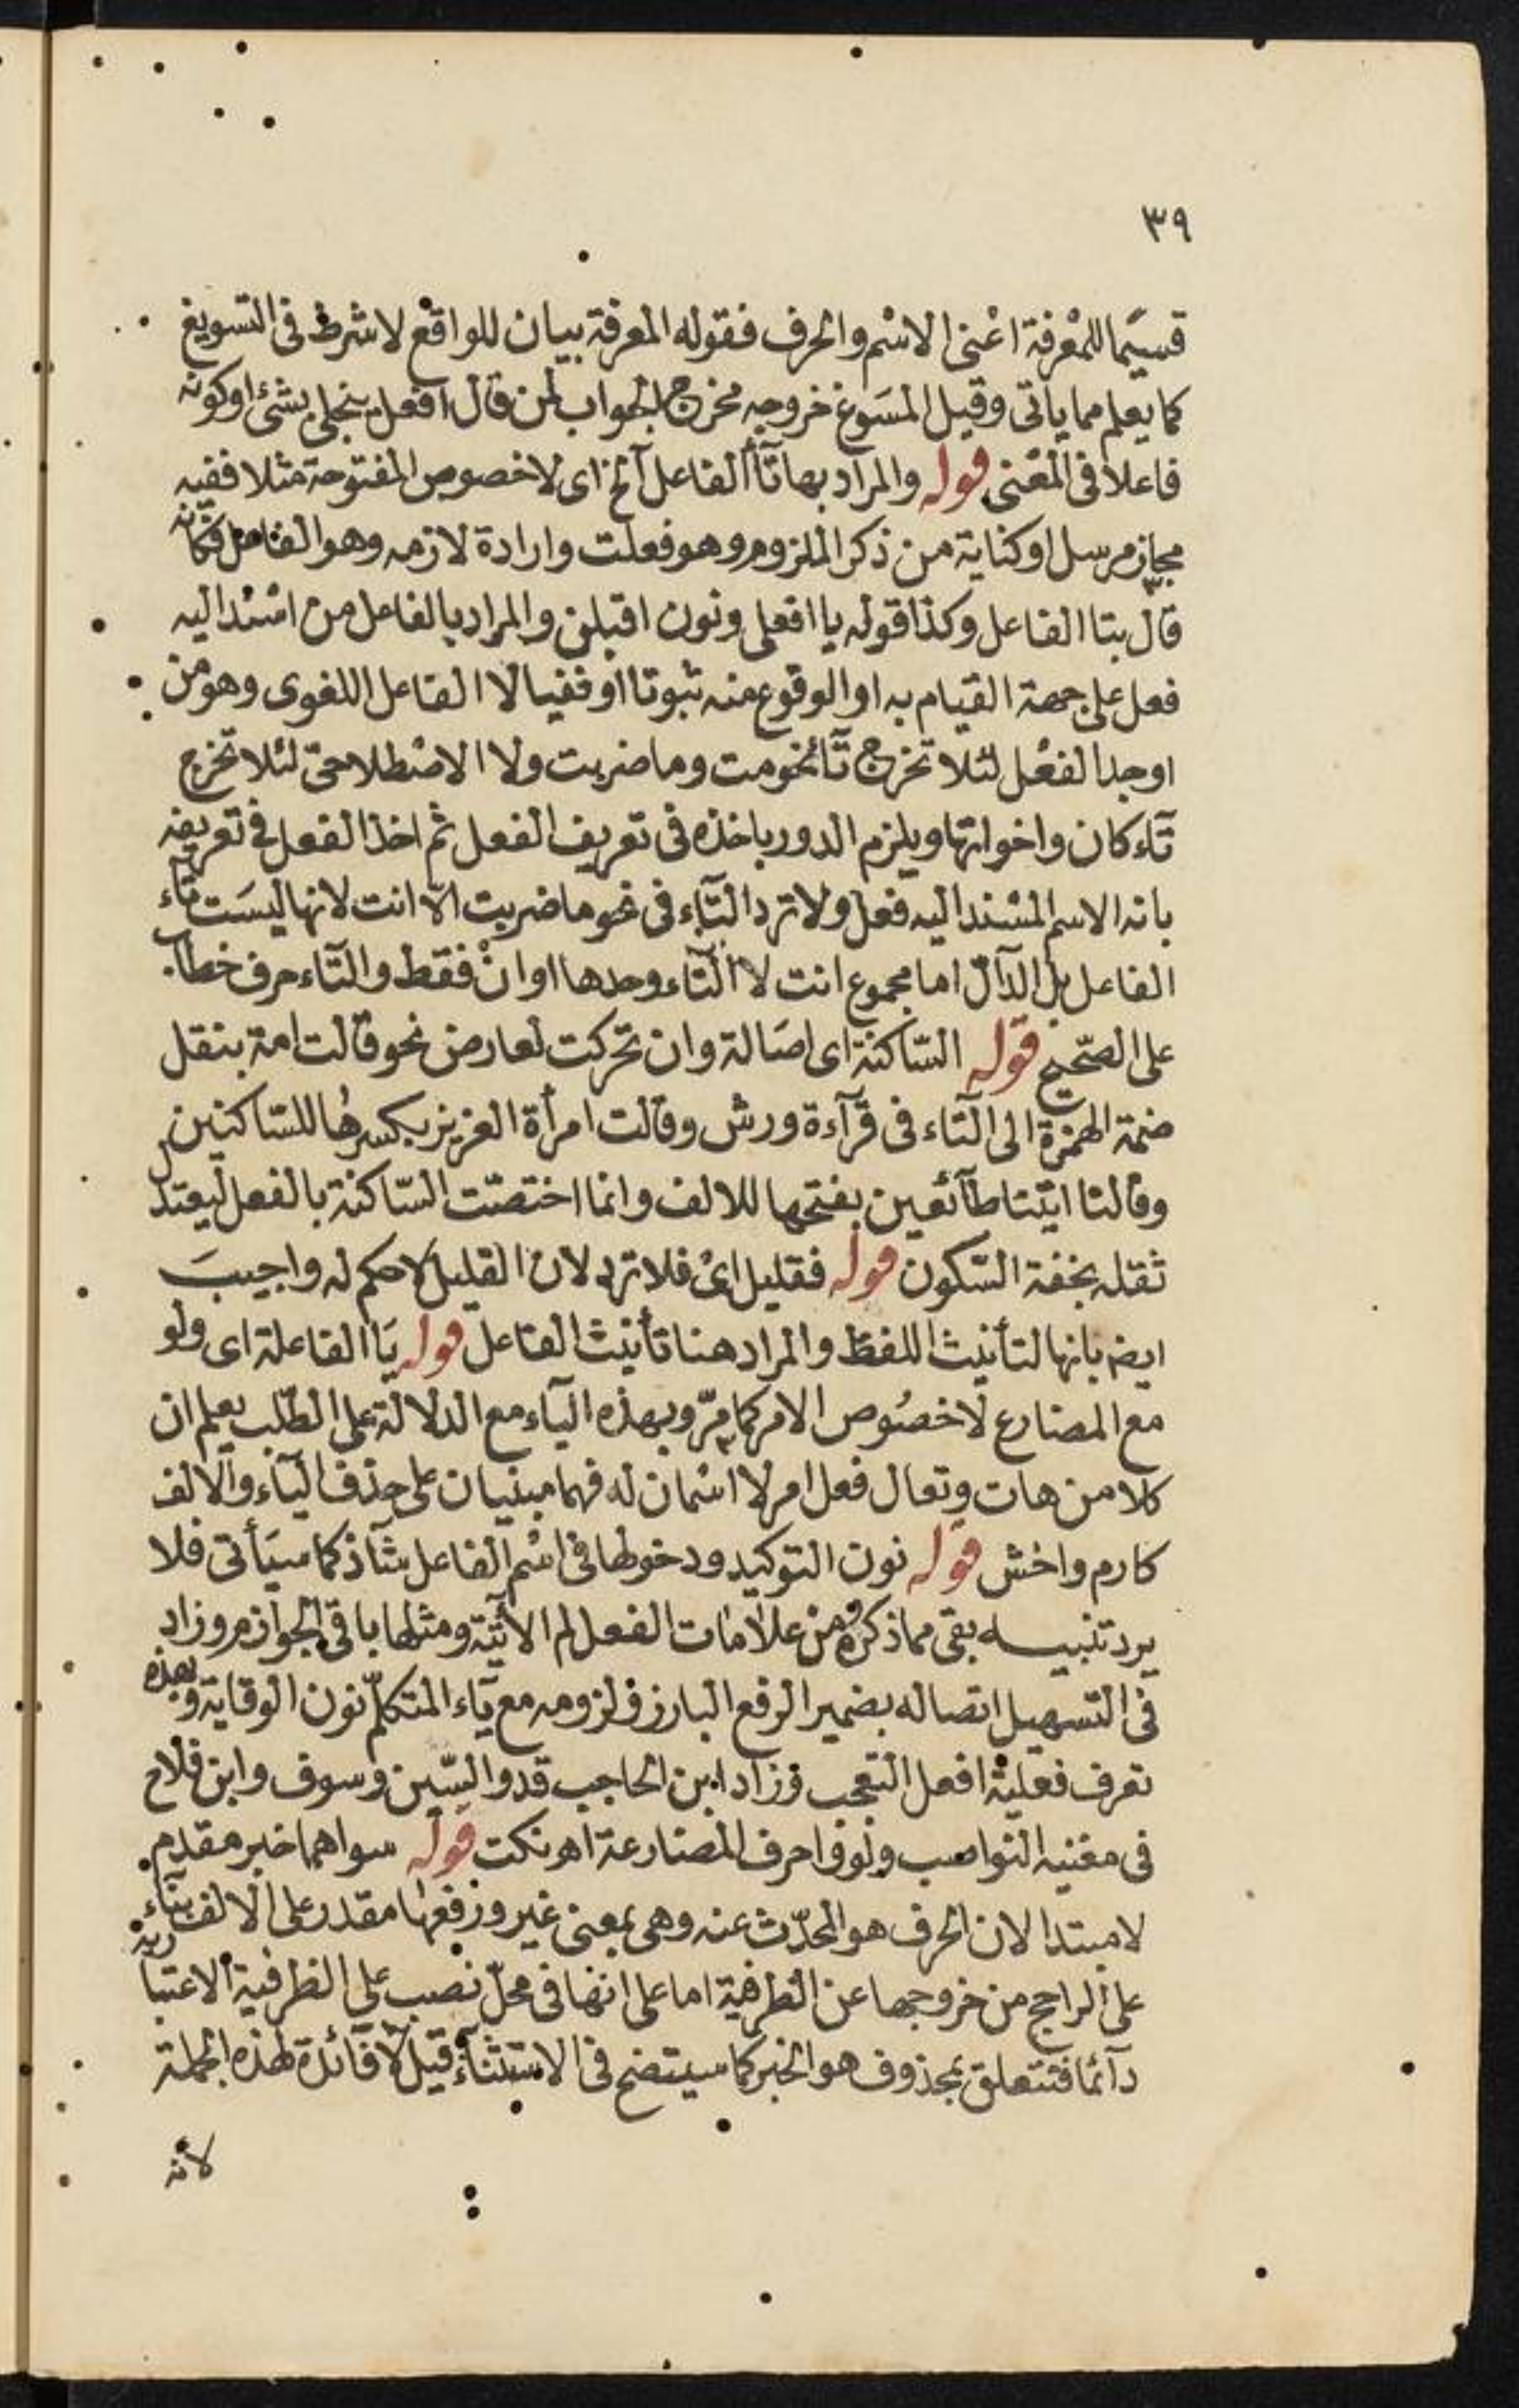 ٣٩
قسيما للمعرفة اعنى الاسم والحرف فقوله المعرفة بيان للواقع لاشرط فى التسويغ
كما يعلم مما ياتى وقيل المسوغ خروجه مخرج الجواب لمن قال افعل ينجلى بشئ او كونه
فاعلا فى المعنى قوله والمراد بها تآ الفاعل آلخ اى لا خصوص المفتوحة مثلا ففيه
مجاز مرسل او كناية من ذكر الملزوم وهو فعلت وارادة لازمه وهو الفاعل فكانه
قال بتا الفاعل وكذا قوله يا افعلى ونون اقبلن والمراد بالفاعل من اسند اليه
فعل على جهة القيام به او الوقوع منه ثبوتا او نفيا لا الفاعل اللغوى وهو من
اوجد الفعل لئلا تخرج تآ نحو مت وما ضربت ولا الاصطلاحى لئلا تخرج
تآء كان واخواتها ويلزم الدور باخذه فى تعريف الفعل ثم اخذ الفعل فى تعريفه
بانه الاسم المسند اليه فعل ولا ترد التآء فى نحو ما ضربت الا انت لانها ليست تاء
الفاعل بل الدآل اما مجموع انت لا التآء وحدها او ان فقط والتآء حرف خطاب
على الصحيح قوله الساكنة اى اصالة وان تحركت لعارض نحو قالت امة بنقل
ضمة الهمزة الى التاء فى قرآءة ورش وقالت امرأة العزيز بكسرها للساكنين
وقالتا ايتنا طآئعين بفتحها للالف وانما اختصت الساكنة بالفعل ليعتدل
ثقله بخفة السكون قوله فقليل اى فلا ترد لان القليل لا حكم له واجيب
ايضا بانها لتأنيث اللفظ والمراد هنا تأنيث الفاعل قوله يا الفاعلة اى ولو
مع المضارع لا خصوص الامر كما مرّ وبهذه اليآء مع الدلالة على الطلب يعلم ان
كلا من هات وتعال فعل امر لا اسمان له فهما مبنيان على حذف اليآء والالف
كارم واخش قوله نون التوكيد ودخولها فى اسم الفاعل شآذ كما سيأتى فلا
يرد تنبيه بقى مما ذكره من علامات الفعل لم الاتية ومثلها باقى الجوازم وزاد
فى التسهيل اتصاله بضمير الرفع البارز ولزومه مع يآء المتكلم نون الوقاية وبهذه
تعرف فعلية افعل التعجب وزاد ابن الحاجب قد والسين وسوف وابن فلاح
فى مغنيه النواصب ولو واحرف المضارعة اهـ نكت قوله سواهما خبر مقدم
لا مبتدا لان الحرف هو المحدّث عنه وهى بمعنى غير ورفعها مقدر على الالف بناء
على الراجح من خروجها عن الظرفية اما على انها فى محلّ نصب على الظرفية الاعتبارية
دآئما فتتعلق بمحذوف هو الخبر كما سيتضح فى الاستثنآء قيل لا فآئدة لهذه الجملة
لانه